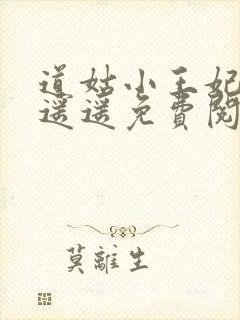 道姑小王妃
遥遥免費閱
莫離生